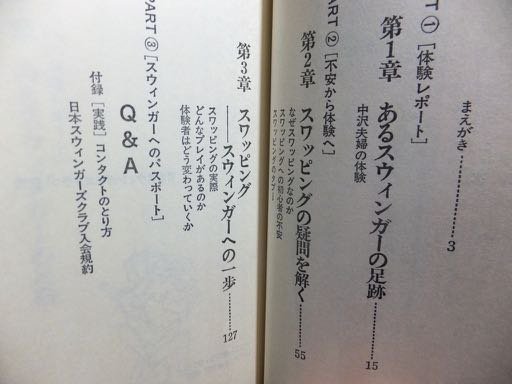 まえがき…………3
PART ①[体験レポート]
第1章 あるスウィンガーの足跡…………15
中沢夫婦の体験
PART ②[不安から体験へ]
第2章 スワッピングの疑問を解く…………55
なぜスワッピングなのか
スワッピングへの初心者の不安
スワッピングのタブー
第3章 スワッピング
――スウィンガーへの一歩…………127
スワッピングの実際
どんなプレイがあるのか
体験者はどう変わっていくか
PART ③[スウィンガーへのパスポート]
Q&A
付録[実践]コンタクトのとり方
日本スウィンガーズクラブ入会規約